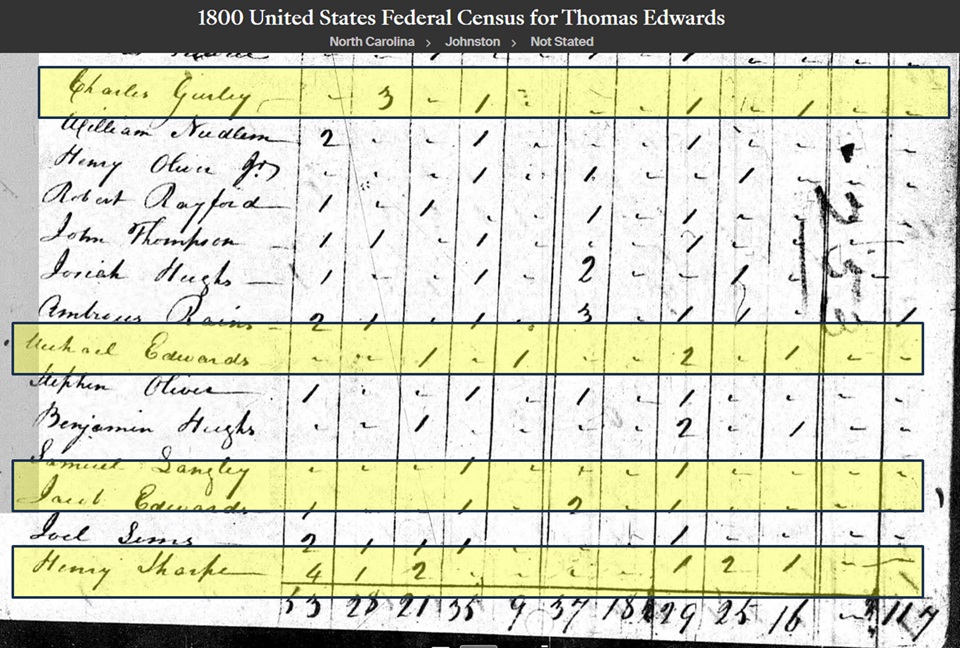 1800 United States Federal Census for Thomas Edwards
North Carolina > Johnston > Not Stated
Charles Gurley - - 3 - 1 - - - - 1 - 1 - -
William Needlem 2 - - 1 - - - - 1 - - - -
Henry Oliver Jr - - - 1 - 1 - - 1 - - -
Robert Rayford 1 - 1 - - 1 - 1 - - - -
John Thompson 1 1 - 1 - - - 1 - - - -
Josiah Hughs 1 - - 1 - 2 - - 1 - - -
Ambrous Rains 2 1 - 1 - 3 - 1 1 - - 1
Michael Edwards - - 1 - 1 - - 2 - 1 - -
Stephen Oliver 1 - - 1 - 1 - 1 - - - -
Benjamin Hughs - - 1 - - - - 2 - 1 - -
Samuel Langley - - - 1 - - - 1 - - - -
Jacob Edwards 1 - - 1 - 2 - 1 - - - -
Joel Sims 2 1 1 1 - - - 1 - - - -
Henry Sharpe 4 1 2 - - - - 1 2 1 - -
53 28 21 35 9 37 18 29 25 16 - 117